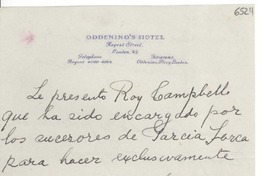 6524
ODDENINO'S HOTEL
Regent Street,
London, W.1
Telephone Telegrams
Regent
Le presento Roy Campbell
que ha sido encargado por
los sucesores de Garcia Lorca
para hacer exclusivamente